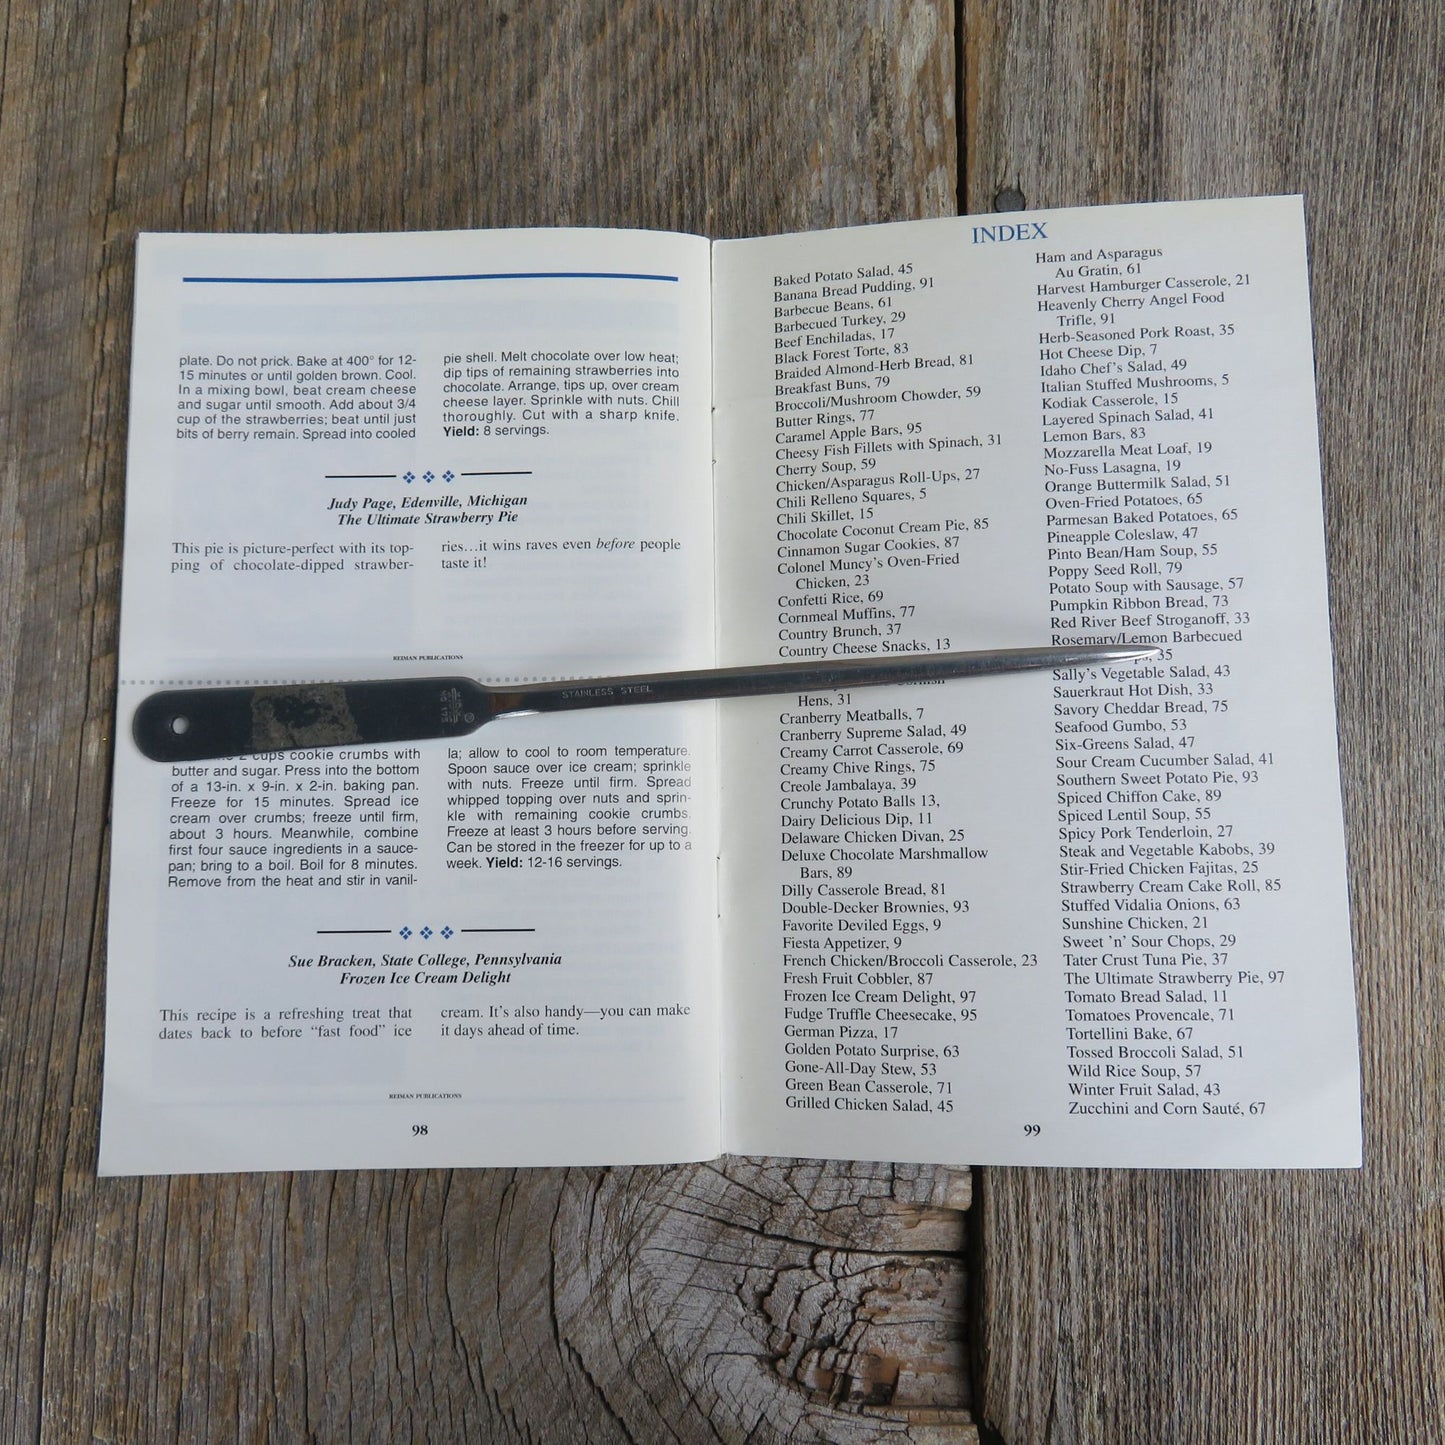 plate. Do not prick. Bake at 400° for 12-
15 minutes or until golden brown. Cool.
In a mixing bowl, beat cream cheese
and sugar until smooth. Add about 3/4
cup of the strawberries; beat until just
bits of berry remain. Spread into cooled
pie shell. Melt chocolate over low heat;
dip tips of remaining strawberries into
chocolate. Arrange, tips up, over cream
cheese layer. Sprinkle with nuts. Chill
thoroughly. Cut with a sharp knife.
Yield: 8 servings.
Judy Page, Edenville, Michigan
The Ultimate Strawberry Pie
This pie is picture-perfect with its top-
ping of chocolate-dipped strawber-
ries…it wins raves even before people
taste it!
REIMAN PUBLICATIONS
STAINLESS STEEL
2 cups cookie crumbs with
butter and sugar. Press into the bottom
of a 13-in. x 9-in. x 2-in. baking pan.
Freeze for 15 minutes. Spread ice
cream over crumbs; freeze until firm,
about 3 hours. Meanwhile, combine
first four sauce ingredients in a sauce-
pan; bring to a boil. Boil for 8 minutes.
Remove from the heat and stir in vanil-
la; allow to cool to room temperature.
Spoon sauce over ice cream; sprinkle
with nuts. Freeze until firm. Spread
whipped topping over nuts and sprin-
kle with remaining cookie crumbs.
Freeze at least 3 hours before serving.
Can be stored in the freezer for up to a
week. Yield: 12-16 servings.
Sue Bracken, State College, Pennsylvania
Frozen Ice Cream Delight
This recipe is a refreshing treat that
dates back to before “fast food” ice
cream. It’s also handy—you can make
it days ahead of time.
REIMAN PUBLICATIONS
98
INDEX
Baked Potato Salad, 45
Banana Bread Pudding, 91
Barbecue Beans, 61
Barbecued Turkey, 29
Beef Enchiladas, 17
Black Forest Torte, 83
Braided Almond-Herb Bread, 81
Breakfast Buns, 79
Broccoli/Mushroom Chowder, 59
Butter Rings, 77
Caramel Apple Bars, 95
Cheesy Fish Fillets with Spinach, 31
Cherry Soup, 59
Chicken/Asparagus Roll-Ups, 27
Chili Relleno Squares, 5
Chili Skillet, 15
Chocolate Coconut Cream Pie, 85
Cinnamon Sugar Cookies, 87
Colonel Muncy’s Oven-Fried
Chicken, 23
Confetti Rice, 69
Cornmeal Muffins, 77
Country Brunch, 37
Country Cheese Snacks, 13
Cornish
Hens, 31
Cranberry Meatballs, 7
Cranberry Supreme Salad, 49
Creamy Carrot Casserole, 69
Creamy Chive Rings, 75
Creole Jambalaya, 39
Crunchy Potato Balls 13,
Dairy Delicious Dip, 11
Delaware Chicken Divan, 25
Deluxe Chocolate Marshmallow
Bars, 89
Dilly Casserole Bread, 81
Double-Decker Brownies, 93
Favorite Deviled Eggs, 9
Fiesta Appetizer, 9
French Chicken/Broccoli Casserole, 23
Fresh Fruit Cobbler, 87
Frozen Ice Cream Delight, 97
Fudge Truffle Cheesecake, 95
German Pizza, 17
Golden Potato Surprise, 63
Gone-All-Day Stew, 53
Green Bean Casserole, 71
Grilled Chicken Salad, 45
Ham and Asparagus
Au Gratin, 61
Harvest Hamburger Casserole, 21
Heavenly Cherry Angel Food
Trifle, 91
Herb-Seasoned Pork Roast, 35
Hot Cheese Dip, 7
Idaho Chef’s Salad, 49
Italian Stuffed Mushrooms, 5
Kodiak Casserole, 15
Layered Spinach Salad, 41
Lemon Bars, 83
Mozzarella Meat Loaf, 19
No-Fuss Lasagna, 19
Orange Buttermilk Salad, 51
Oven-Fried Potatoes, 65
Parmesan Baked Potatoes, 65
Pineapple Coleslaw, 47
Pinto Bean/Ham Soup, 55
Poppy Seed Roll, 79
Potato Soup with Sausage, 57
Pumpkin Ribbon Bread, 73
Red River Beef Stroganoff, 33
Rosemary/Lemon Barbecued
35
Sally’s Vegetable Salad, 43
Sauerkraut Hot Dish, 33
Savory Cheddar Bread, 75
Seafood Gumbo, 53
Six-Greens Salad, 47
Sour Cream Cucumber Salad, 41
Southern Sweet Potato Pie, 93
Spiced Chiffon Cake, 89
Spiced Lentil Soup, 55
Spicy Pork Tenderloin, 27
Steak and Vegetable Kabobs, 39
Stir-Fried Chicken Fajitas, 25
Strawberry Cream Cake Roll, 85
Stuffed Vidalia Onions, 63
Sunshine Chicken, 21
Sweet ’n’ Sour Chops, 29
Tater Crust Tuna Pie, 37
The Ultimate Strawberry Pie, 97
Tomato Bread Salad, 11
Tomatoes Provencale, 71
Tortellini Bake, 67
Tossed Broccoli Salad, 51
Wild Rice Soup, 57
Winter Fruit Salad, 43
Zucchini and Corn Sauté, 67
99